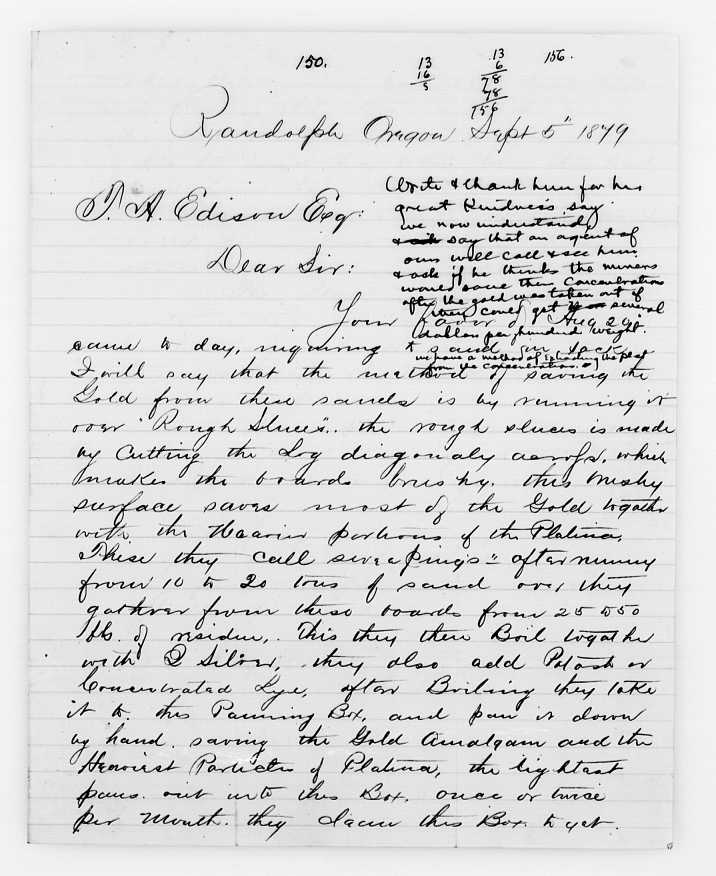 150.
13
16
5
13
6
78
78
156
156.
Randolph Oregon Sept 5" 1879
T. A. Edison Esq:
Dear Sir:
Write & thank him for his
great Kindness say
we now understand
say that an agent of
ours will call & see him
& ask if he thinks the miners
would save their concentrations
after the gold was taken out if
they could get several
dollars per hundred weight.
we have a method of the plat
from the concentrations. e)
Your favor of Aug 20"
came to day, inquiring
I will say that the method of saving the
Gold from these sands is by running it
over "Rough Sluces".. the rough sluces is made
by Cutting the Log diagonaly across, which
makes the boards brushy. this brushy
surface saves most of the Gold togather
with the Heavier portions of the Platina.
These they call sweapings" after runing
from 10 to 20 tons of sand over they
gathver from these boards from 25 to 50
lbs. of residue,. This they then Boil togather
with Q Silver, they also add Potash or
Concentrated Lye, after Boiling they take
it to this Panning Box, and pan it down
by hand. saving the Gold Amalgam and the
Heaviest Particles of Platina, the lightest
pans out into this Box. once or twice
per Month. they clean this Box to get.